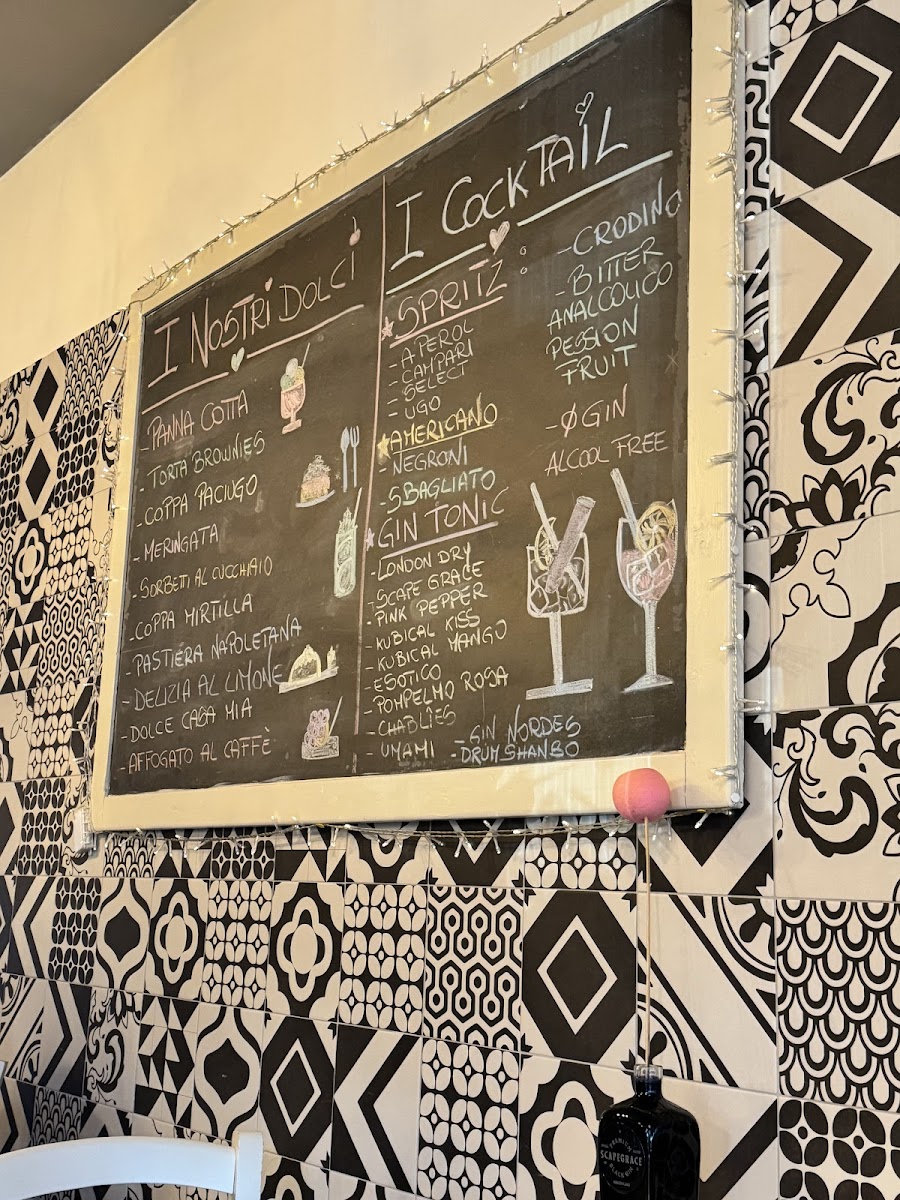 I NOSTRI DOLCI
- PANNA COTTA
- TORTA BROWNIES
- COPPA PACIUGO
- MERINGATA
- SORBETTI AL CUCCHIAIO
- COPPA MIRTILLA
- PASTIERA NAPOLETANA
- DELIZIA AL LIMONE
- DOLCE CASA MIA
- AFFOGATO AL CAFFÈ
I COCKTAIL
SPRITZ:
- APEROL
- CAMPARI
- SELECT
- UGO
AMERICANO
- NEGRONI
- SBAGLIATO
GIN TONIC
- LONDON DRY
- SCAPE GRACE
- PINK PEPPER
- KUBICAL KISS
- KUBICAL MANGO
- ESOTICO
- POMPELMO ROSA
- CHABLIES
- UMAMI
- GIN NORDES
- DRUMSHANBO
- CRODINO
- BITTER
ANALCOLICO
PESSION
FRUIT
- ØGIN
ALCOOL FREE
SCAPEGRACE